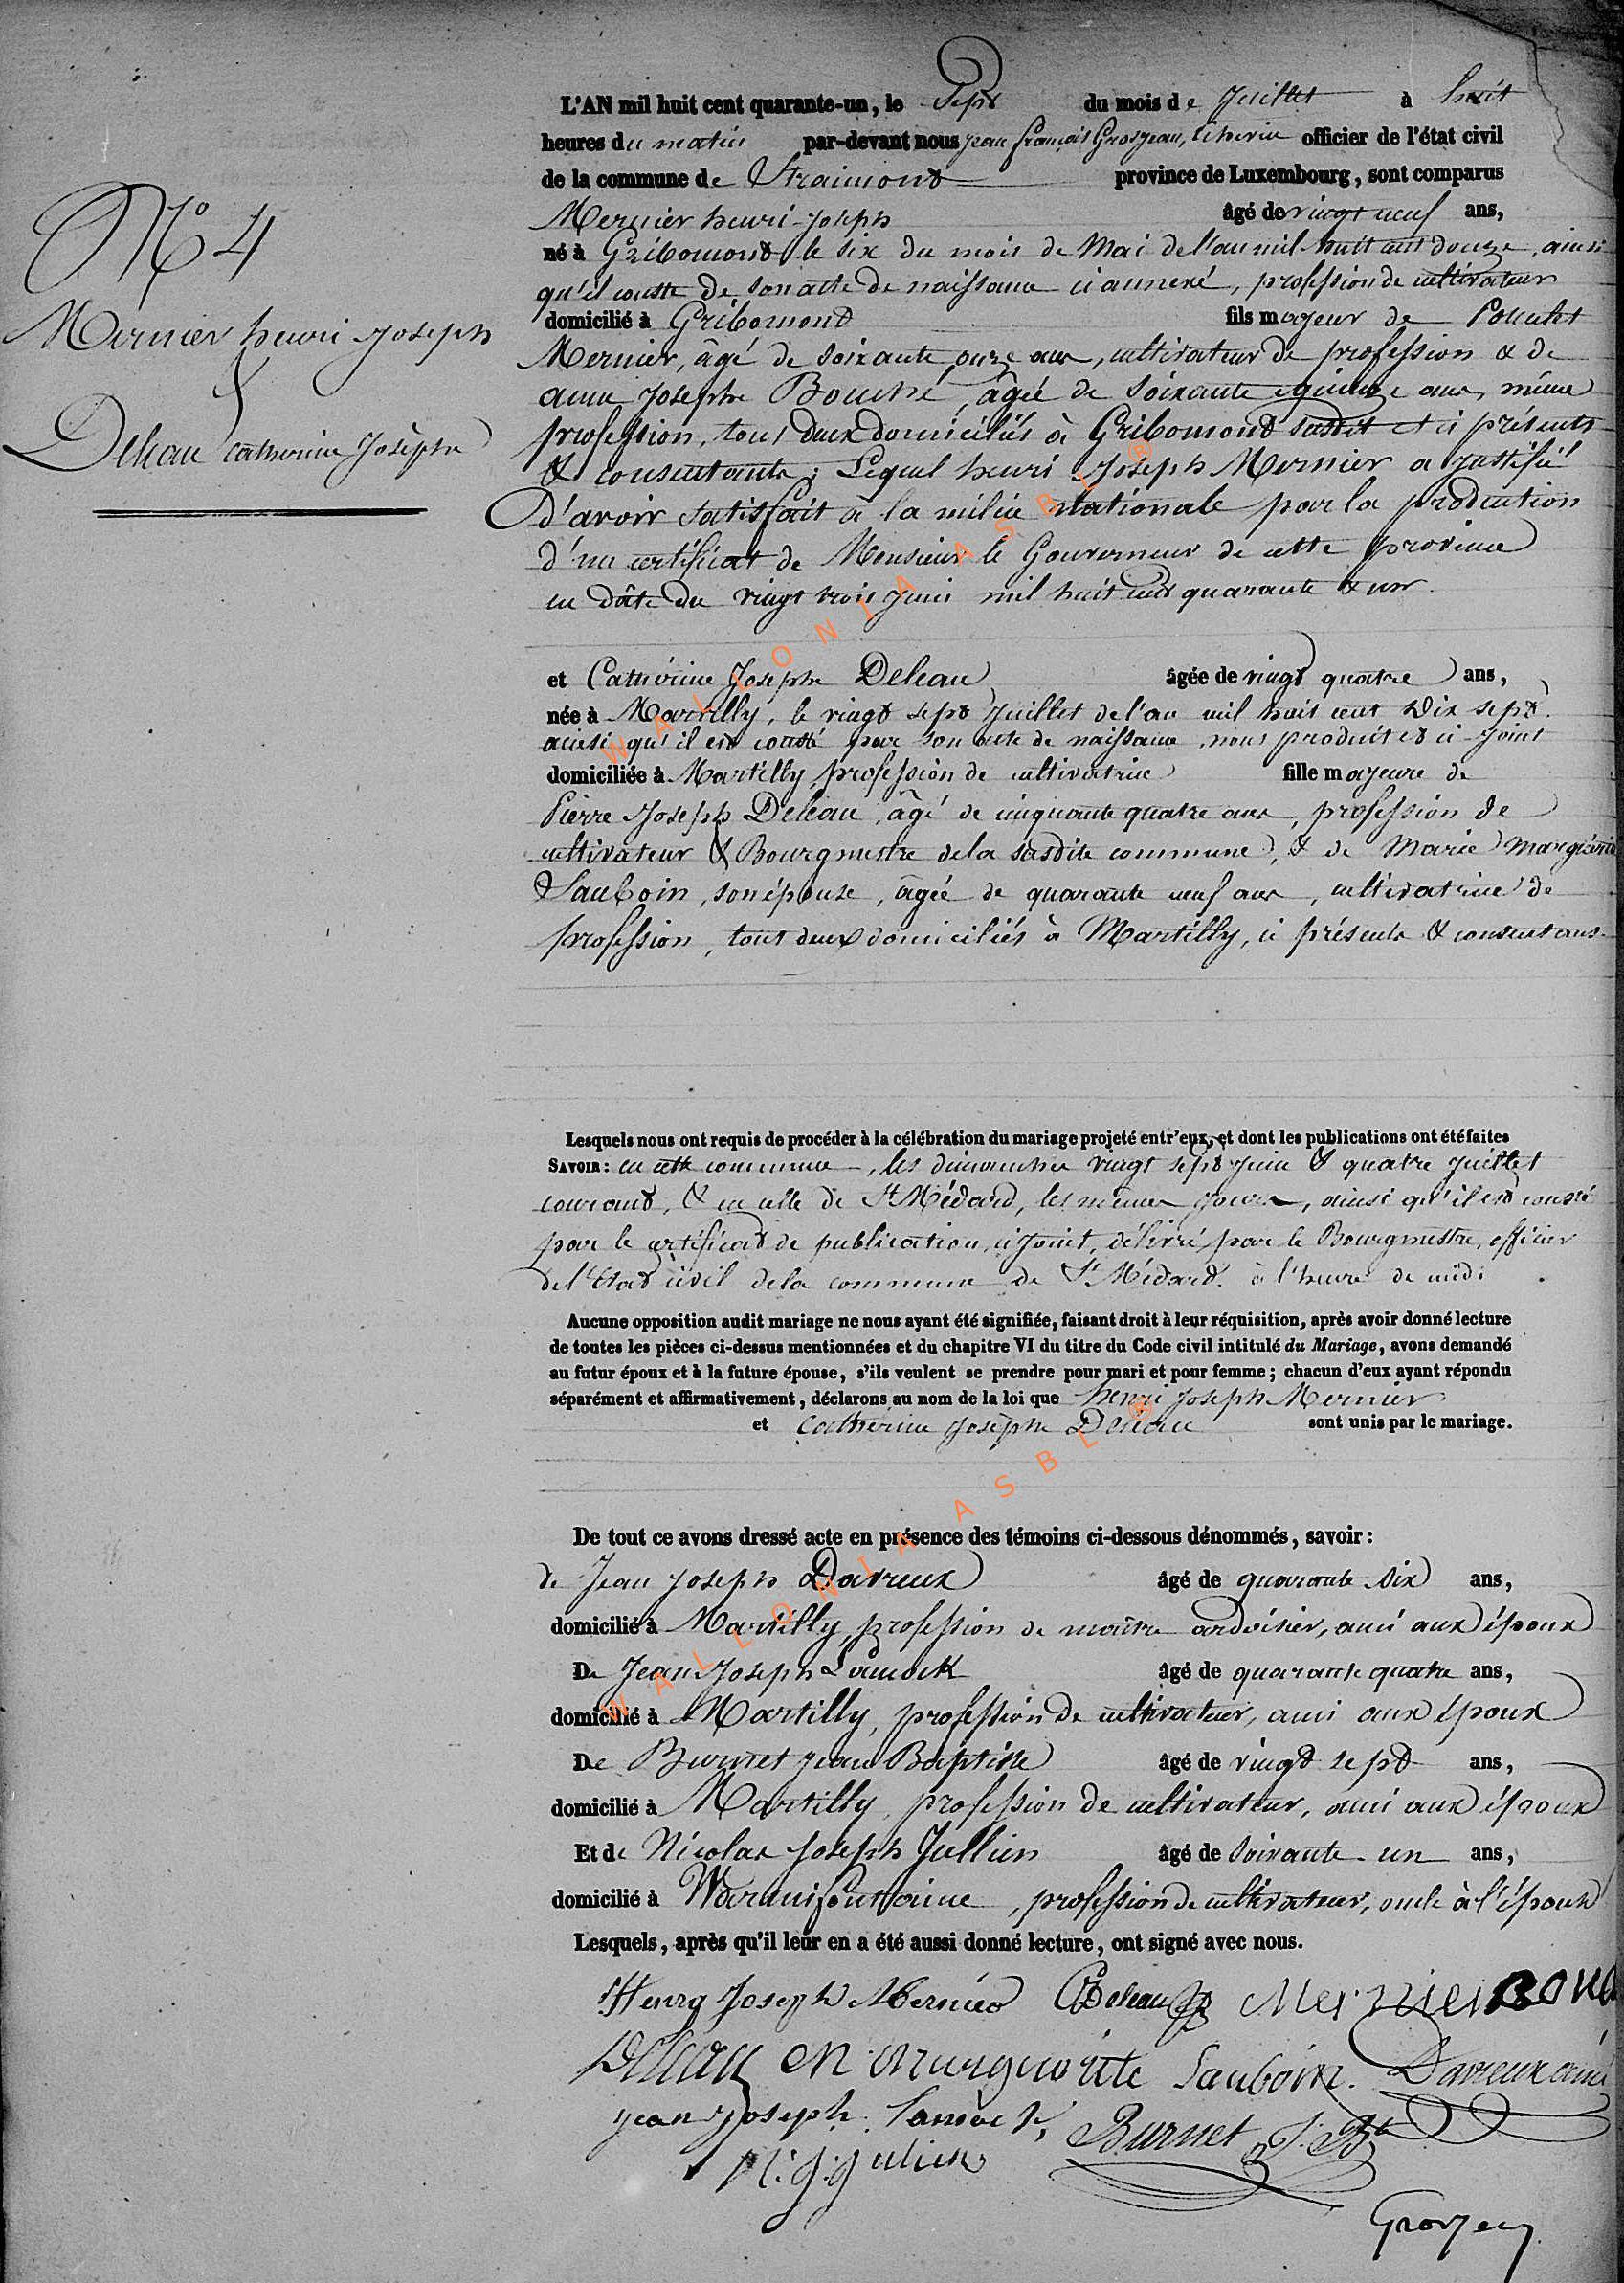 N° 4
Mernier henri Joseph
&
Deleau Catherine Josèphe
L'AN mil huit cent quarante-un, le Sept du mois de Juillet à huit
heures du matin par-devant nous jean françois Grosjean, échevin officier de l'état civil
de la commune de Straimont province de Luxembourg, sont comparus
Mernier henri-Joseph âgé de vingt neuf ans,
né à Gribomont le six du mois de Mai de l'an mil huit cent douze, ainsi
qu'il conste de son acte de naissance ci annexé, profession de cultivateur
domicilié à Gribomont fils majeur de
Mernier, âgé de soixante onze ans, cultivateur de profession & de
anne Josephe Bouché, âgée de soixante quinze ans, même
profession, tous deux domiciliés à Gribomont susdit et ci présents
& consentants; Lequel henri Joseph Mernier a justifié
D'avoir satisfait à la milice Nationale par la production
d'un certificat de Monsieur le Gouverneur de cette province
en dâte du vingt trois juin mil huit cent quarante & un.
et Cathérine Josèphe Deleau âgée de vingt quatre ans,
née à Martilly, le vingt sept Juillet de l'an mil huit cent Dix sept.
ainsi qu'il est consté par son acte de naissance, nous produit et ci-joint
domiciliée à Martilly, profession de cultivatrice fille majeure de
Pierre Joseph Deleau, âgé de cinquante quatre ans, profession de
cultivateur & Bourgmestre de la susdite commune, & de Marie
Sauboin, son épouse, âgée de quarante neuf ans, cultivatrice de
profession, tout deux domiciliés à Martilly, ci présents & consentans.
Lesquels nous ont requis de procéder à la célébration du mariage projeté entr'eux, et dont les publications ont été faites
SAVOIR: en cette commune, les dimanches vingt sept juin & quatre juillet
courant, & en celle de St Médard, les mêmes jours, ainsi qu'il est consté
par le certificat de publication, ci joint, délivré par le Bourgmestre, officier
de l'Etat civil de la commune de St Médard. à l'heure de midi
Aucune opposition audit mariage ne nous ayant été signifiée, faisant droit à leur réquisition, après avoir donné lecture
de toutes les pièces ci-dessus mentionnées et du chapitre VI du titre du Code civil intitulé du Mariage, avons demandé
au futur époux et à la future épouse, s'ils veulent se prendre pour mari et pour femme; chacun d'eux ayant répondu
séparément et affirmativement, déclarons au nom de la loi que henri Joseph Mernier
et Cathérine Josèphe Deleau sont unis par le mariage.
De tout ce avons dressé acte en présence des témoins ci-dessous dénommés, savoir:
de Jean Joseph Davreux âgé de quarante six ans,
domicilié à Martilly, profession de maître ardoisier, ami aux époux
De Jean Joseph Lamock âgé de quarante quatre ans,
domicilié à Martilly, profession de cultivateur, ami aux époux
De Burnet jean Baptiste âgé de vingt sept ans,
domicilié à Martilly, profession de cultivateur, ami aux époux
Et de Nicolas Joseph Jullien âgé de soixante un ans,
domicilié à Warmifontaine, profession de cultivateur, oncle à l'époux
Lesquels, après qu'il leur en a été aussi donné lecture, ont signé avec nous.
Henry Joseph Mernier CDeleau Mernier
Deleau M Sauboin. Davreux ainé
jean joseph Burnet J. Bte
N. J. Julien
Grosjean
WALLONIA ASBL ®
WALLONIA ASBL ®